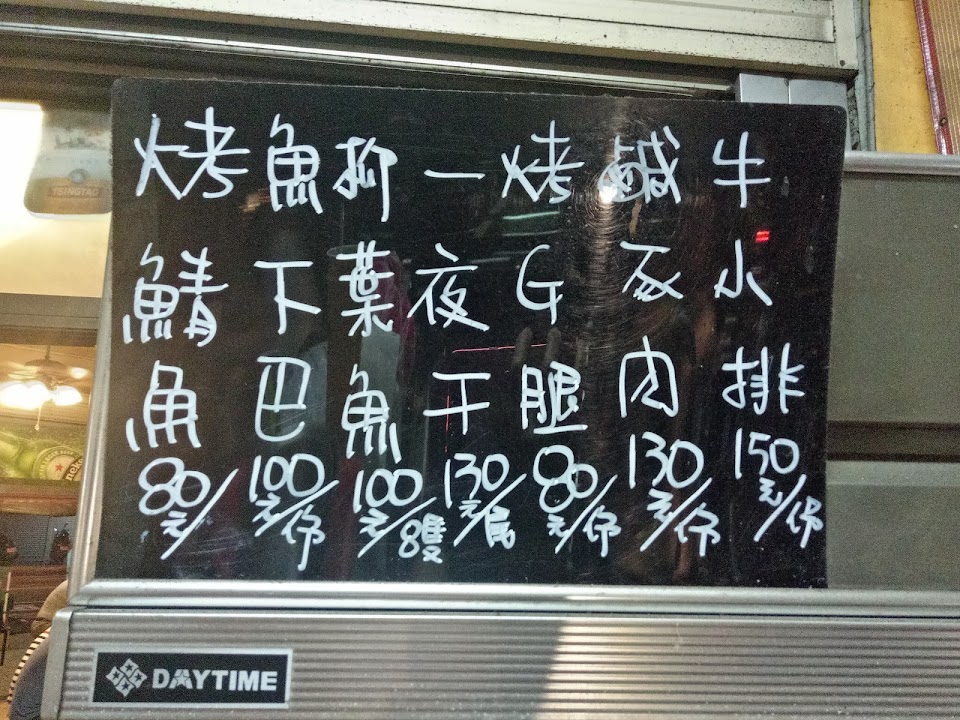 烤鯖魚 80元/
魚下巴 100元/份
柳葉魚 100元/8隻
一夜干 130元/尾
烤G腿 80元/份
鹹豕肉 130元/份
牛小排 150元/份
TSINGTAO
DAYTIME